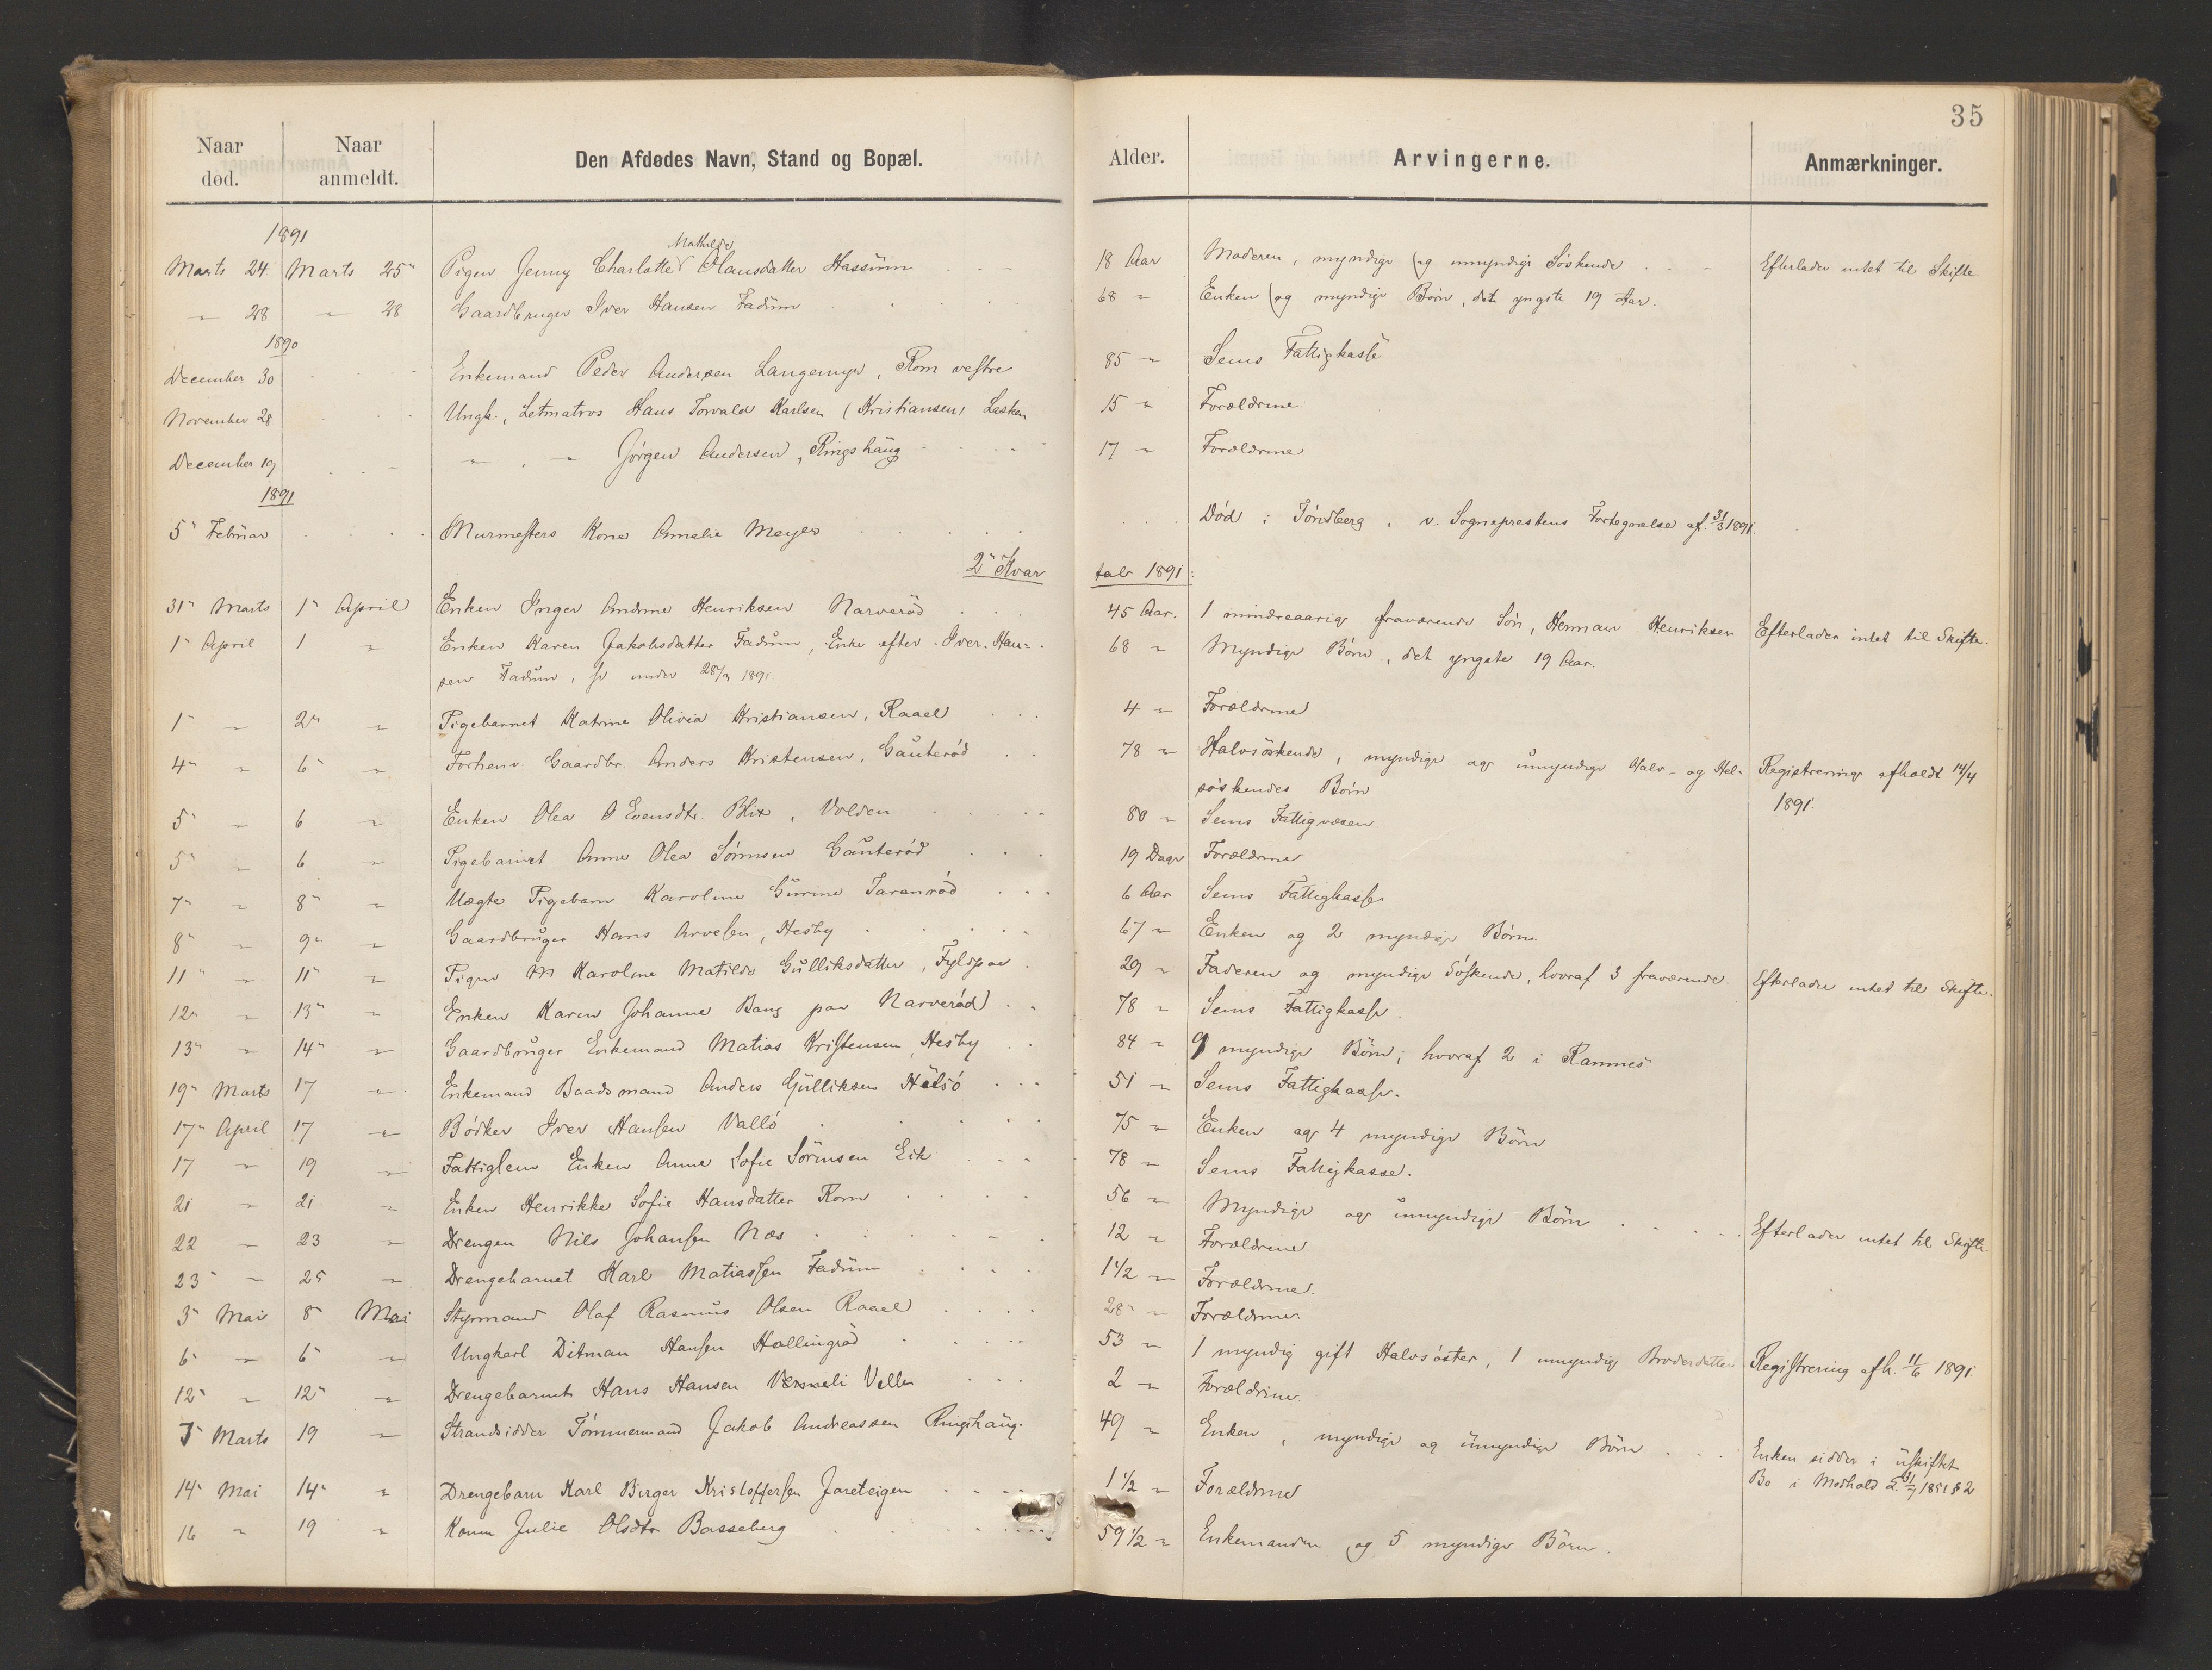 35
Naar død. Naar anmeldt. Den Afdødes Navn, Stand og Bopæl. Alder. Arvingerne. Anmærkninger.
1891
Marts 24 Marts 25 Pigen Jenny Charlotte Mathilde Hansdatter Hassum 18 Aar Moderen, myndige og umyndige Søskende Efterlader intet til Skifte
" 28 " 28 Gaardbruger Iver Hansen Fadum 68 " Enken og myndige Børn, det yngste 19 Aar.
1890
December 30 Enkemand Peder Andersen Langemyr, Rom vestre 85 " Sems Fattigkasse
November 28 Ungk., Letmatros Hans Torvald Karlsen (Kristiansen) Lasken 15 " Forældrene
December 19 " , " Jørgen Andersen, Ringshaug 17 " Forældrene
1891
5 Februar Murmesters Kone Amalie Meyer Død i Tønsberg, v. Sogneprestens Fortegnelse af 31/3 1891.
2 Kvartal 1891:
31 Marts 1 April Enken Inger Andrine Henriksen Narverød 45 Aar. 1 mindreaarig fraværende Søn, Herman Henriksen Efterlader intet til Skifte.
1 April 1 " Enken Karen Jakobsdatter Fadum, Enke efter Iver Han- 68 " Myndige Børn, det yngste 19 Aar.
sen Fadum, se under 28/3 1891.
1 " 2 " Pigebarnet Katrine Olivia Kristiansen, Raael 4 " Forældrene
4 " 6 " Forhenv. Gaardbr. Anders Kristensen, Gauterød 78 " Halvsøskende, myndige og umyndige Halv- og Hel- Registrering afholdt 14/4
søskendes Børn 1891.
5 " 6 " Enken Olea O Evensdtr. Blix, Volden 80 " Sems Fattigvæsen.
5 " 6 " Pigebarnet Anne Olea Sørensen Gauterød 19 Dage Forældrene
7 " 8 " Uægte Pigebarn Karoline Gurine Taranrød 6 Aar Sems Fattigkasse
8 " 9 " Gaardbruger Hans Arvesen, Hesby 67 " Enken og 2 myndige Børn.
11 " 11 " Pigen M Karoline Matilde Gulliksdatter, 29 " Faderen og myndige Søskende, hvoraf 3 fraværende. Efterlader intet til Skifte.
12 " 13 " Enken Karen Johanne Bang paa Narverød 78 " Sems Fattigkasse.
13 " 14 " Gaardbruger Enkemand Matias Kristensen, Hesby 84 " 9 myndige Børn; hvoraf 2 i Ramnes
19 Marts 17 " Enkemand Baadsmand Anders Gulliksen Hølsø 51 " Sems Fattigkasse.
17 April 17 " Bødker Iver Hansen Vallø 75 " Enken og 4 myndige Børn
17 " 19 " Fattiglem Enken Anne Sofie Sørensen Eik 78 " Sems Fattigkasse.
21 " 21 " Enken Henrikke Sofie Hansdatter Rom 56 " Myndige og umyndige Børn Efterlader intet til Skifte.
22 " 23 " Drengen Nils Johansen Næs 12 " Forældrene
23 " 25 " Drengebarnet Karl Matiassen Fadum 1 1/2 " Forældrene.
3 Mai 8 Mai Styrmand Olaf Rasmus Olsen Raael 28 " Forældrene.
6 " 6 " Ungkarl Ditman Hansen Hallingrød 53 " 1 myndig gift Halvsøster, 1 umyndig Broderdatter Registrering afh. 11/6 1891.
12 " 12 " Drengebarnet Hans Hansen Velle 2 " Forældrene.
7 Marts 19 " Strandsidder Tømmermand Jakob Andreassen Ringshaug. 49 " Enken, myndige og umyndige Børn Enken sidder i uskiftet
14 Mai 14 " Drengebarn Karl Birger Kristoffersen Jareteigen 1 1/2 " Forældrene Bo i Medhold L. 31/7 1851 § 2
16 " 19 " Konen Julie Olsdtr Basseberg 59 1/2 " Enkemanden og 5 myndige Børn.